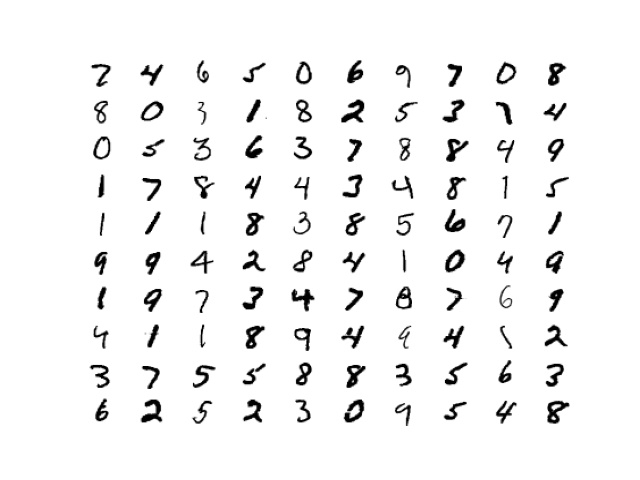 7 4 6 5 0 6 9 7 0 8
8 0 3 1 8 2 5 3 7 4
0 5 3 6 3 7 8 8 4 9
1 7 8 4 4 3 4 8 1 5
1 1 1 8 3 8 5 6 7 1
9 9 4 2 8 4 1 0 4 9
1 9 7 3 4 7 8 7 6 9
4 1 1 8 9 4 9 4 1 2
3 7 5 5 8 8 3 5 6 3
6 2 5 2 3 0 9 5 4 8